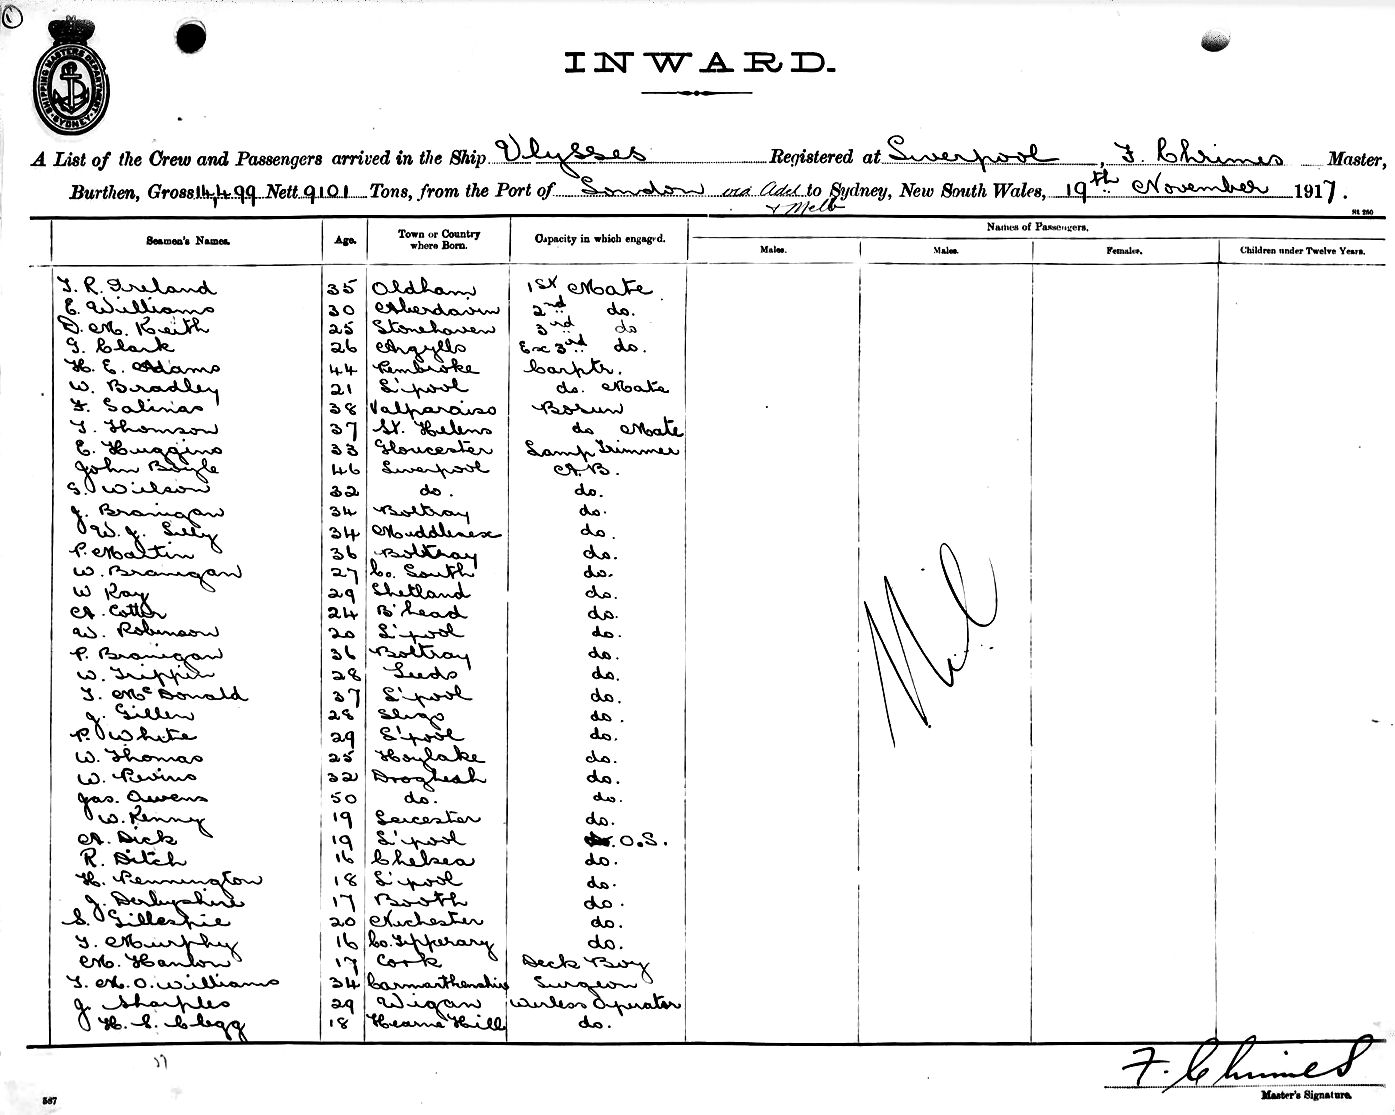 1
SHIPPING MASTERS DEPARTMENT
SYDNEY
INWARD.
A List of the Crew and Passengers arrived in the Ship Ulysses Registered at Liverpool, F. Chrimes Master,
Burthen, Gross 14,499 Nett 9101 Tons, from the Port of London via Adel & Melb to Sydney, New South Wales, 19th November 1917.
St 260
Seamen's Names. Age. Town or Country where Born. Capacity in which engaged. Names of Passengers.
Males. Males. Females. Children under Twelve Years.
T. R. Ireland 35 Oldham 1st Mate
E. Williams 30 Aberdavin 2nd do.
D. M. Keith 25 Stonehaven 3rd do
G. Clark 26 Argylls Ex 3rd do.
H. E. Adams 44 Pembroke Carptr.
W. Bradley 21 L'pool do. Mate
F. Salinas 38 Valparaiso Bosun
T. Thomson 37 St. Helens do Mate
E. Huggins 33 Gloucester Lamp Trimmer
John Boyle 46 Liverpool A.B.
G. Wilson 32 do. do.
J. Branigan 34 Boltray do.
W. J. Lilly 34 Middlesex do.
P. Martin 36 Boltray do.
W. Branigan 27 Co. Louth do.
W Ray 29 Shetland do.
A. Cotter 24 B'head do.
W. Robinson 20 L'pool do.
P. Branigan 36 Boltray do.
W. Trippin 28 Leeds do.
T. McDonald 37 L'pool do.
J. Gillen 28 Sligo do.
P. White 29 L'pool do.
W. Thomas 25 Hoylake do.
W. Nevins 32 Drogheah do.
Jas. Owens 50 do. do.
W. Kenny 19 Leicester do.
A. Dick 19 L'pool O.S.
R. Ditch 16 Chelsea do.
H. Pennington 18 L'pool do.
J. Derbyshire 17 Booth do.
S. Gillespie 20 Chichester do.
T. Murphy 16 Co. Tipperary do.
M. Hanlon 17 Cork Deck Boy
T. M. O. Williams 34 Carmarthenshire Surgeon
J. Sharples 29 Wigan Wireless Operator
H. S. Clegg 18 Hearne Hill do.
Nil
37
F. Chrimes
Master's Signature.
567